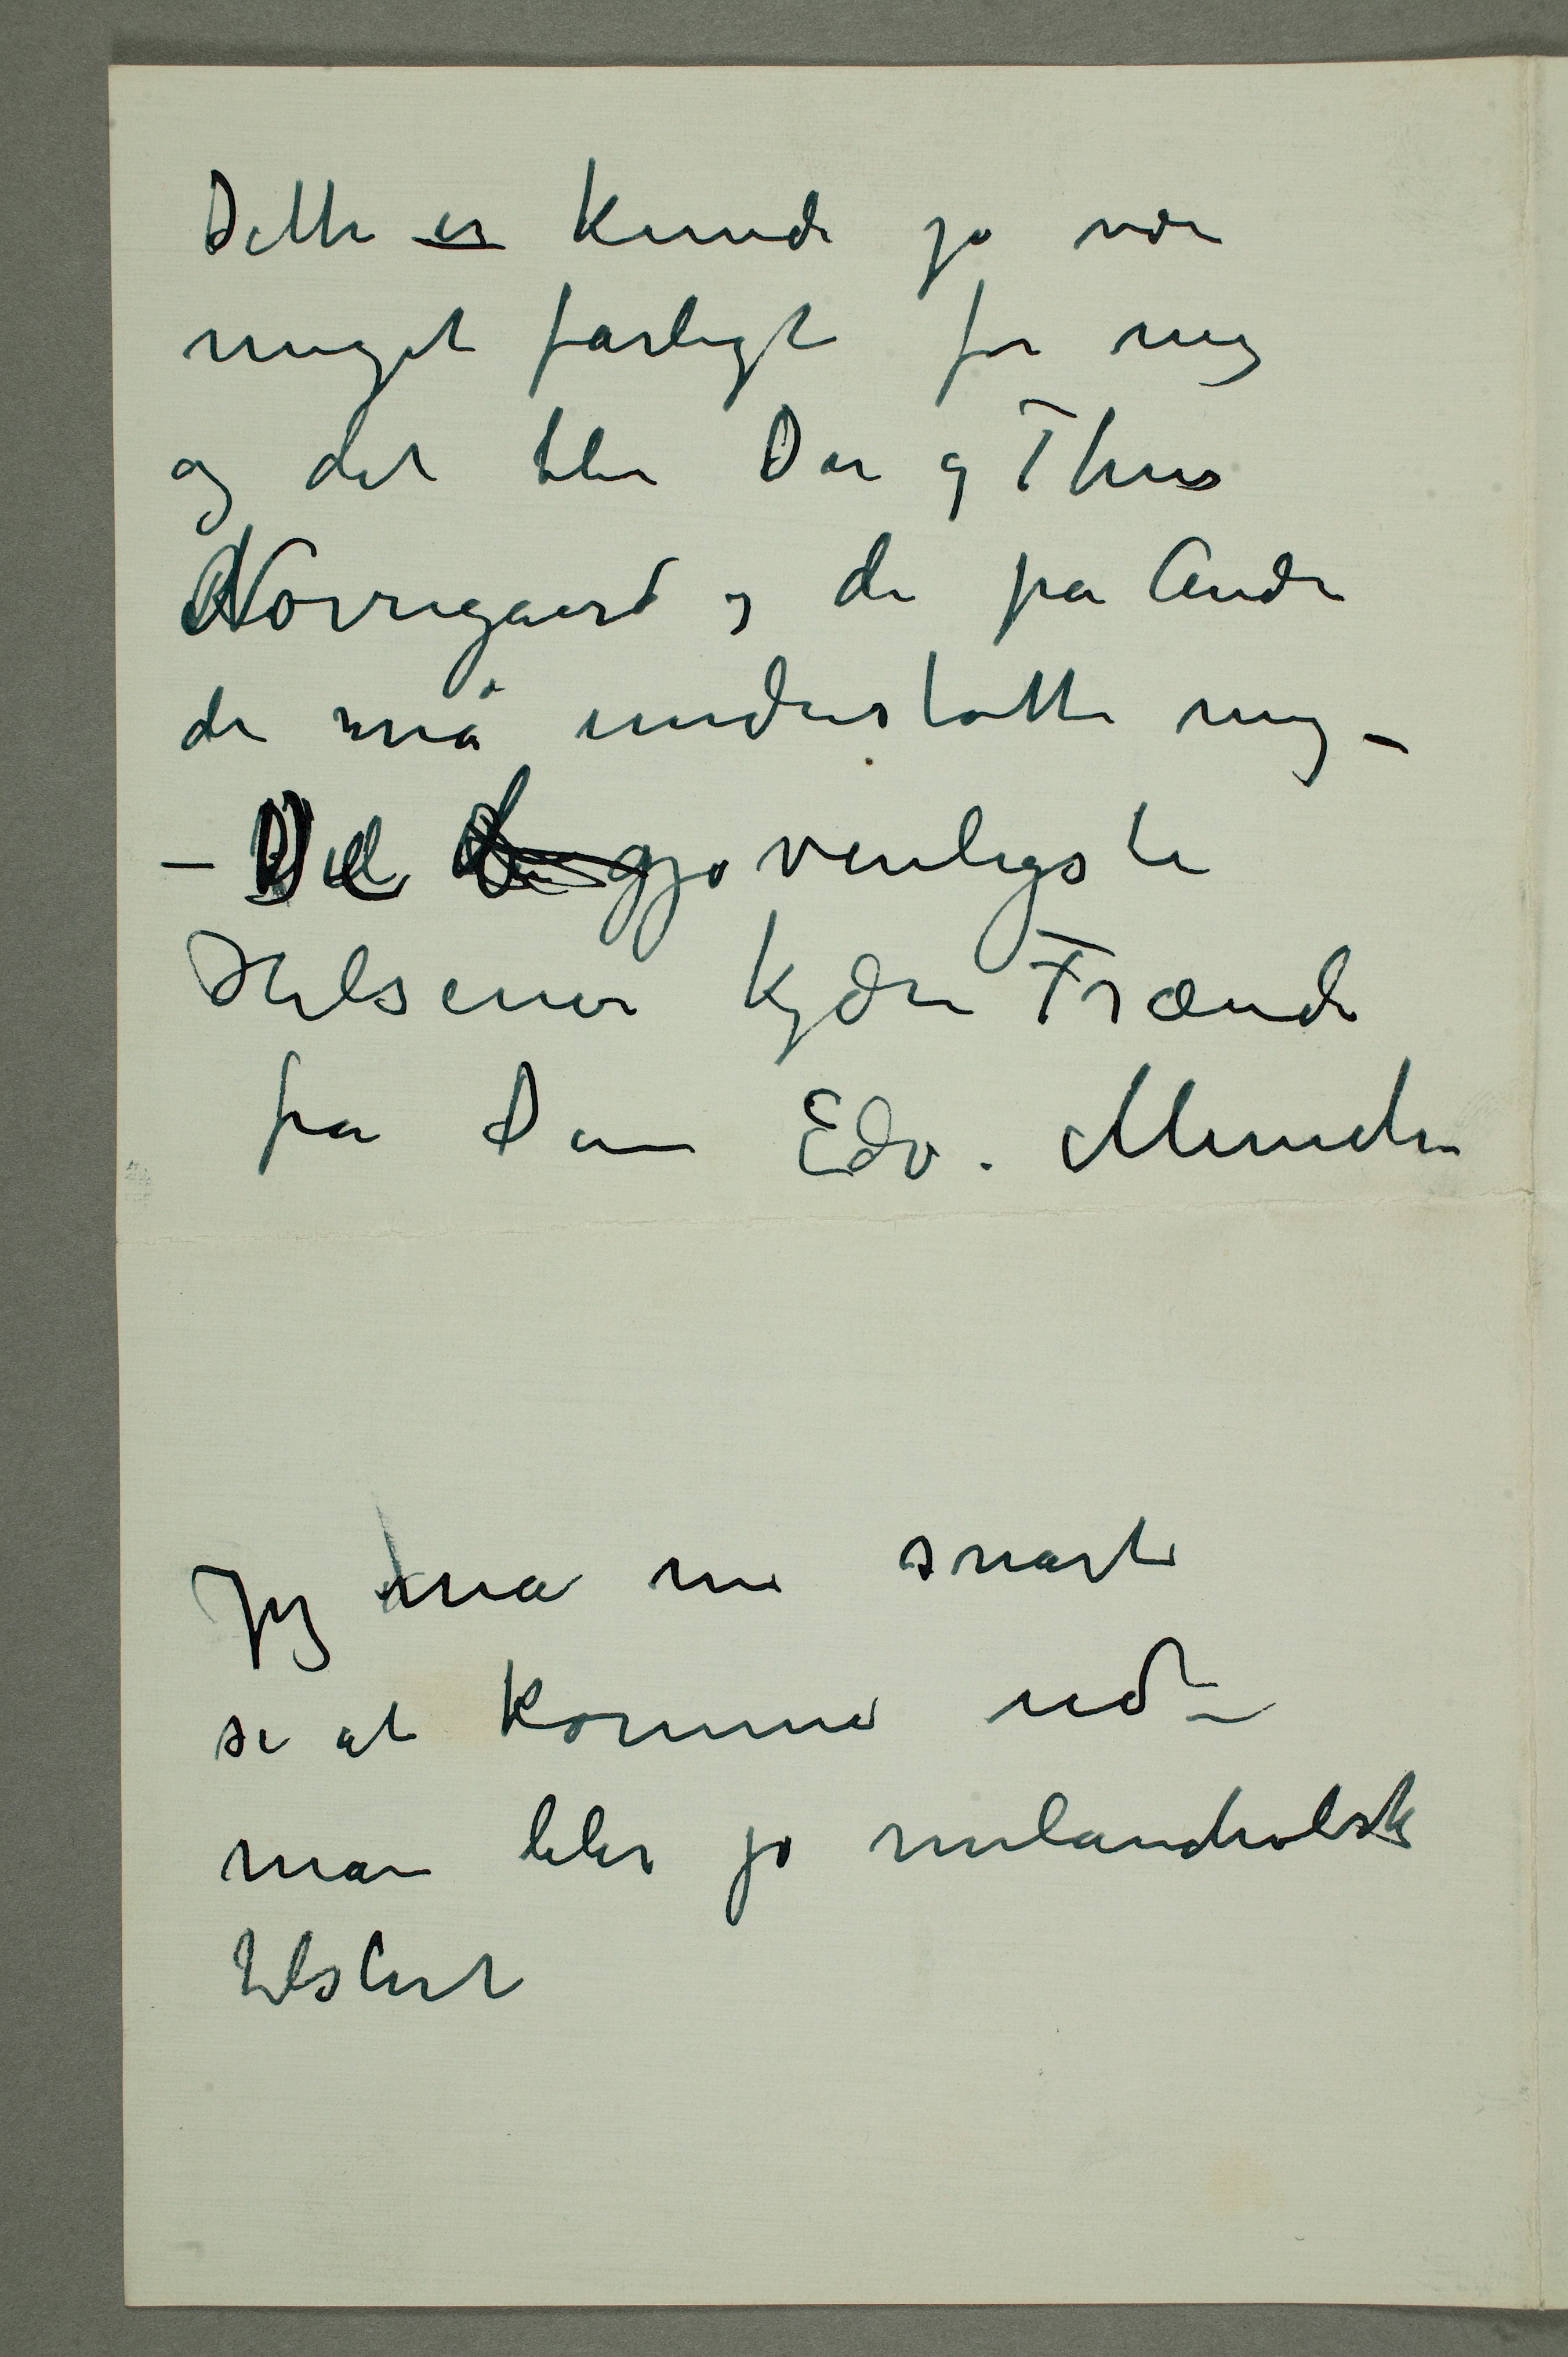 Dette er kunde jo være
meget farligt for mig
og det blir Dere og Thiis
Nørregaard og de par Andre
der må understøtte mig –
– De jo venligste
Hilsener kjære Frænde
fra Din Edv. Munch
Jeg må nu snart
se at komme ud –
man blir jo melancholsk
tilslut